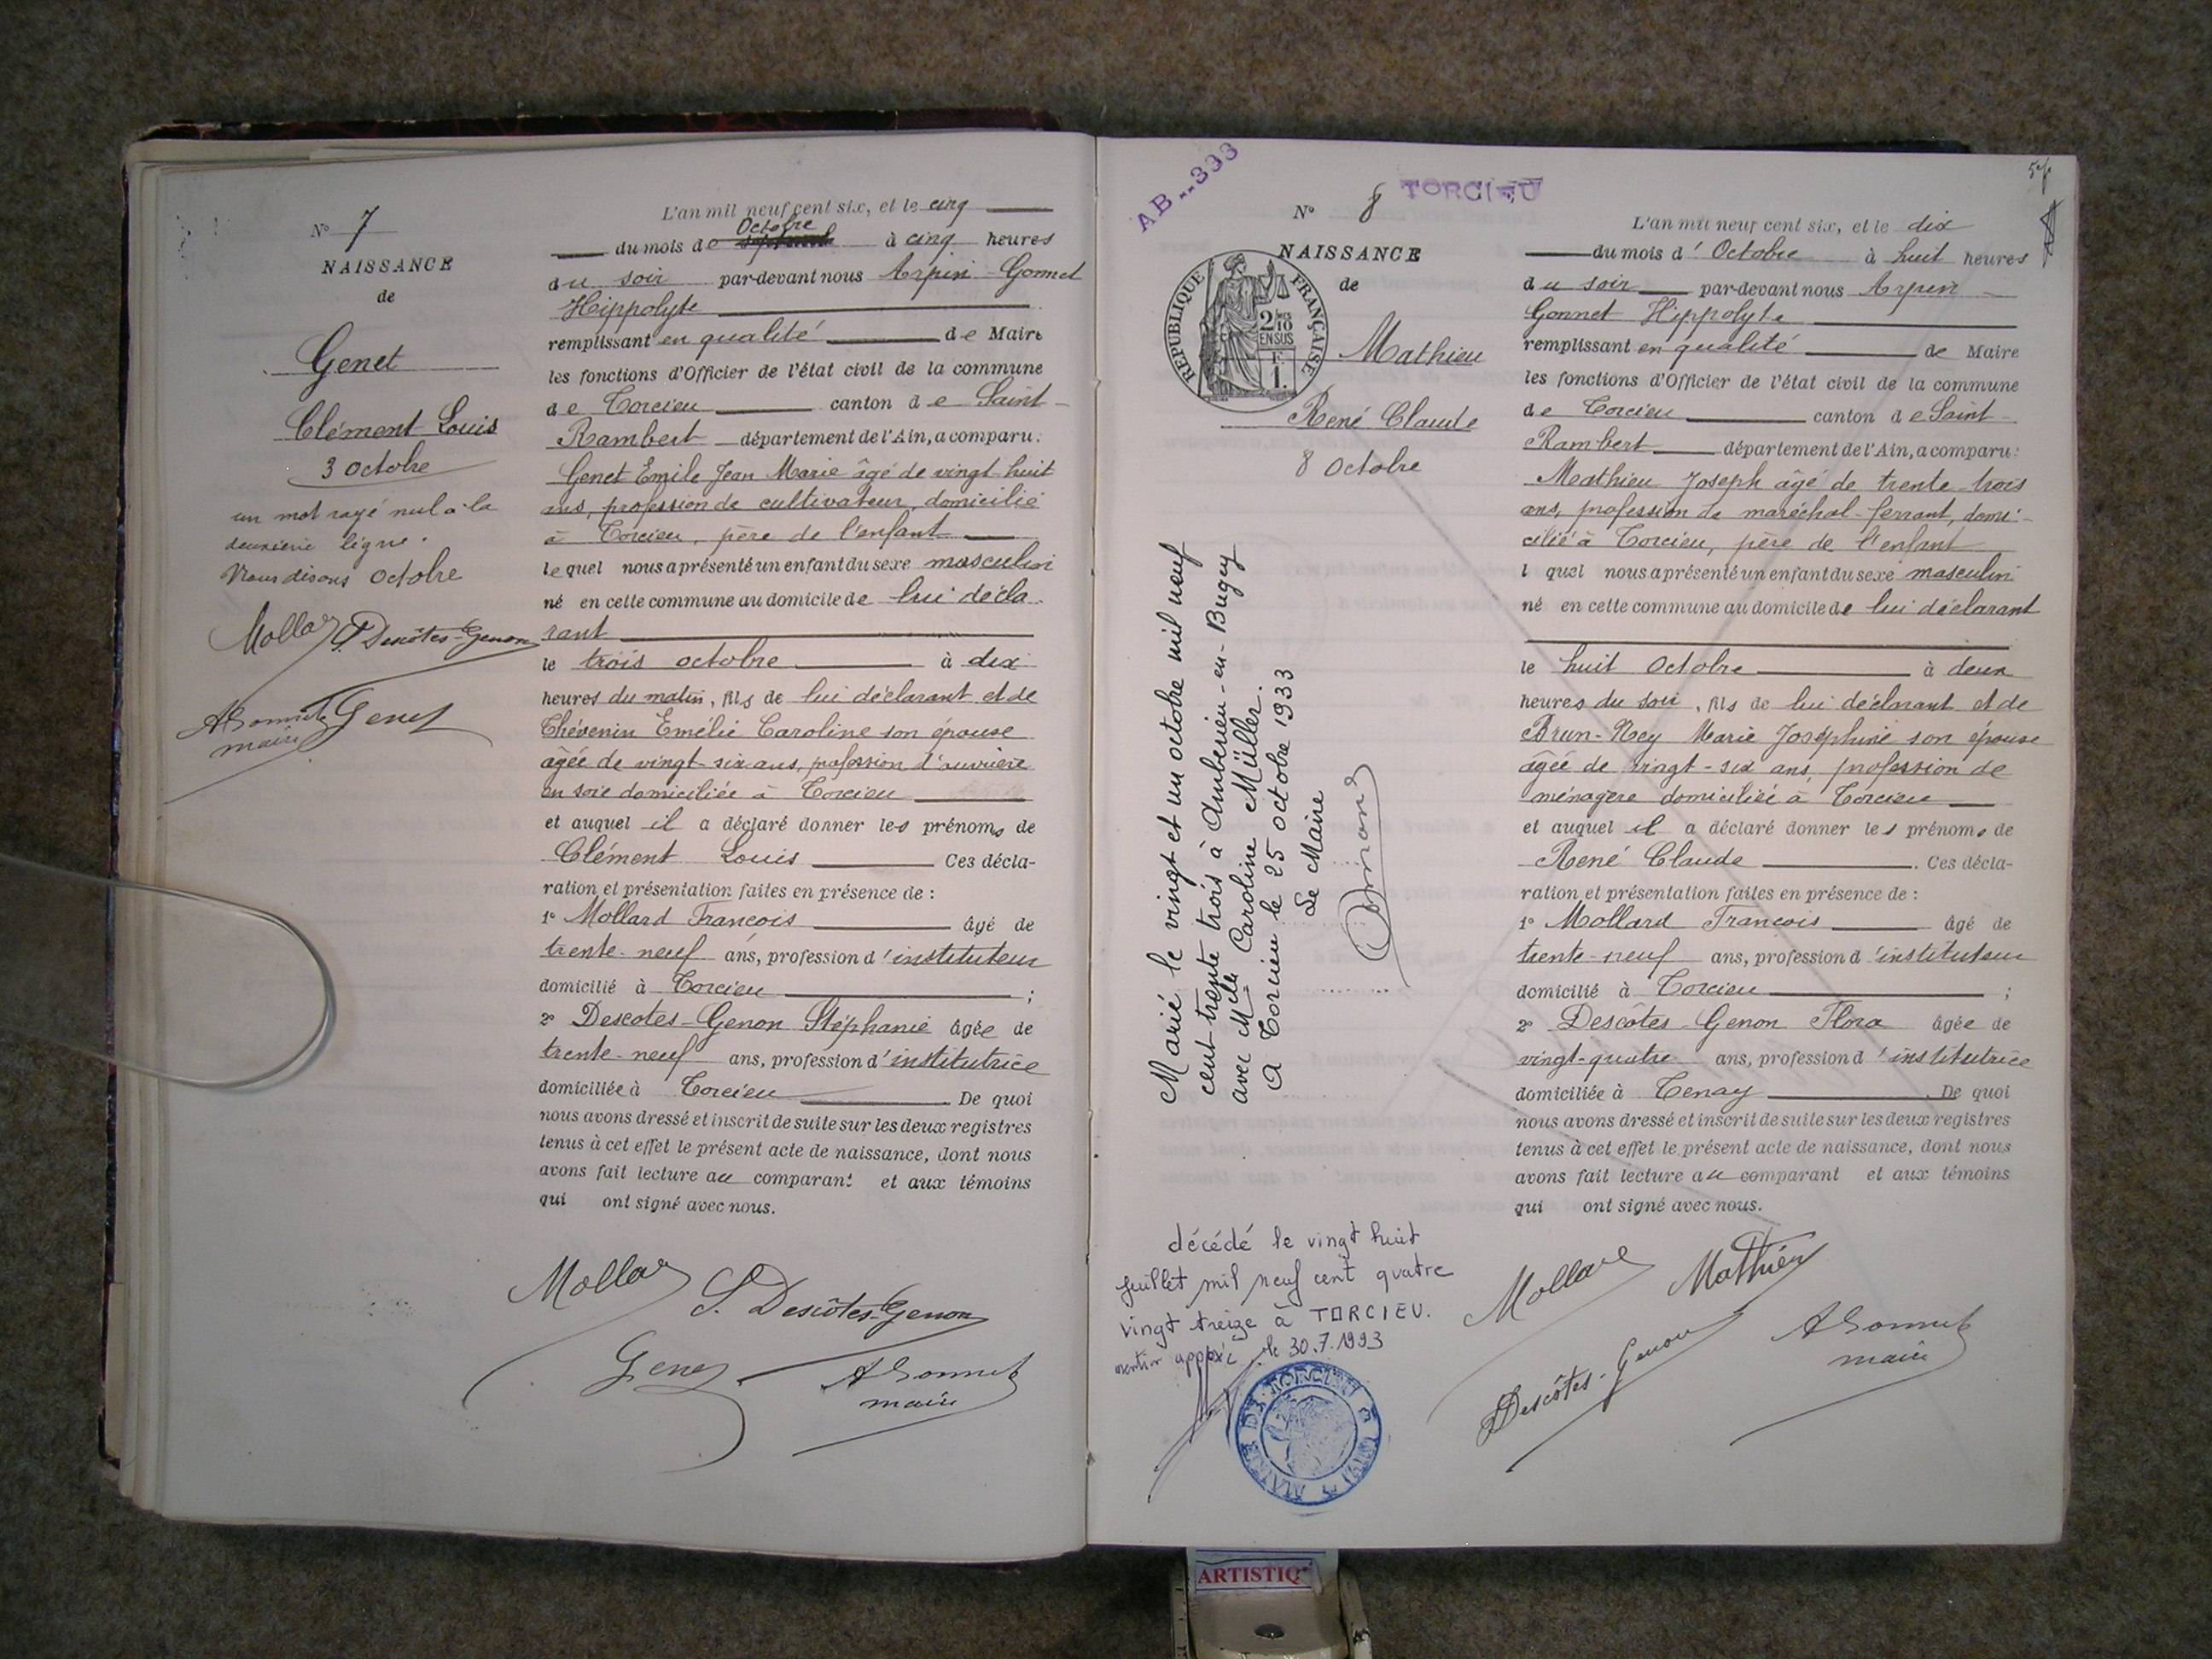 N° 7
NAISSANCE
de
Genet
Clément Louis
3 octobre
un mot rayé nul à la
deuxième ligne.
Nous disons octobre
Mollard S. Descôtes-Genon
AGonnet Genet
maire
L'an mil neuf cent six, et le cinq
Octobre
du mois de à cinq heures
du soir par-devant nous Arpin-Gonnet
Hippolyte
remplissant en qualité de Maire
les fonctions d'Officier de l'état civil de la commune
de Torcieu canton de Saint-
Rambert département de l'Ain, a comparu:
Genet Emile Jean Marie âgé de vingt-huit
ans, profession de cultivateur, domicilié
à Torcieu, père de l'enfant
lequel nous a présenté un enfant du sexe masculin
né en cette commune au domicile de lui décla-
rant
le trois octobre à dix
heures du matin, fils de lui déclarant et de
Thévenin Emélie Caroline son épouse
âgée de vingt-six ans, profession d'ouvrière
en soie domiciliée à Torcieu
et auquel il a déclaré donner les prénoms de
Clément Louis Ces décla-
ration et présentation faites en présence de :
1° Mollard François âgé de
trente-neuf ans, profession d'instituteur
domicilié à Torcieu ;
2° Descotes-Genon Stéphanie âgée de
trente-neuf ans, profession d'institutrice
domiciliée à Torcieu De quoi
nous avons dressé et inscrit de suite sur les deux registres
tenus à cet effet le présent acte de naissance, dont nous
avons fait lecture au comparant et aux témoins
qui ont signé avec nous.
Mollard S. Descôtes-Genon
Genet AGonnet
maire
AB--333
TORCIEU
N° 8
NAISSANCE
de
RÉPUBLIQUE FRANÇAISE
2/10
EN SUS
F.
1.
Mathieu
René Claude
8 Octobre
Marié le vingt et un octobre mil neuf
cent trente trois à Ambérieu-en-Bugey
avec Mlle Caroline Müller.
A Torcieu le 25 octobre 1933
Le Maire
décédé le vingt huit
juillet mil neuf cent quatre
vingt treize à TORCIEU.
mention apposée le 30.7.1993
MAIRIE DE TORCIEU (AIN)
L'an mil neuf cent six, et le dix
du mois d'Octobre à huit heures
du soir par-devant nous Arpin
Gonnet Hippolyte
remplissant en qualité de Maire
les fonctions d'Officier de l'état civil de la commune
de Torcieu canton de Saint-
Rambert département de l'Ain, a comparu:
Mathieu Joseph âgé de trente-trois
ans, profession de maréchal-ferrant, domi-
cilié à Torcieu, père de l'enfant
l quel nous a présenté un enfant du sexe masculin
né en cette commune au domicile de lui déclarant
le huit Octobre à deux
heures du soir, fils de lui déclarant et de
Brun-Ney Marie Joséphine son épouse
âgée de vingt-six ans, profession de
ménagère domiciliée à Torcieu
et auquel il a déclaré donner les prénoms de
René Claude. Ces décla-
ration et présentation faites en présence de :
1° Mollard François âgé de
trente-neuf ans, profession d'instituteur
domicilié à Torcieu ;
2° Descôtes-Genon Flora âgée de
vingt-quatre ans, profession d'institutrice
domiciliée à Tenay. De quoi
nous avons dressé et inscrit de suite sur les deux registres
tenus à cet effet le présent acte de naissance, dont nous
avons fait lecture au comparant et aux témoins
qui ont signé avec nous.
Mollard Mathieu
Descôtes-Genon AGonnet
maire
ARTISTIQ